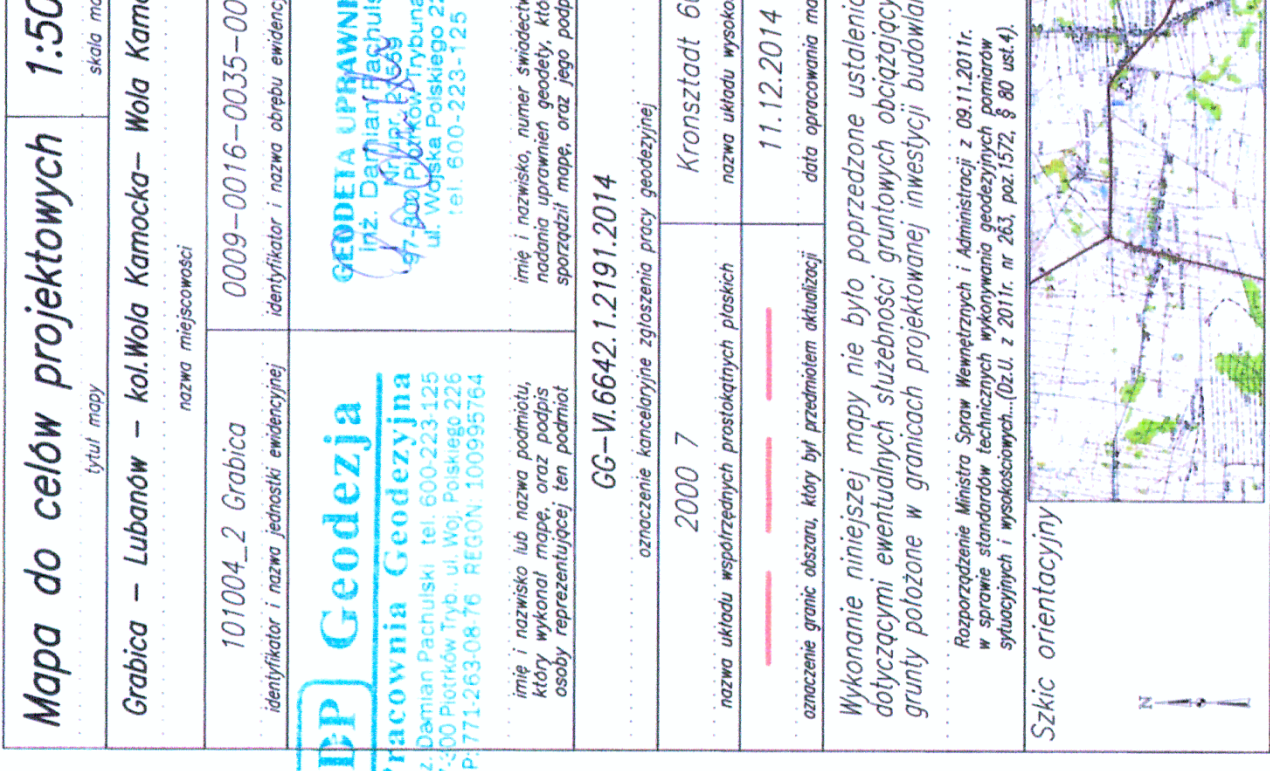 Mapa do celów projektowych
tytuł mapy
1:50
skala ma
Grabica – Lubanów – kol.Wola Kamocka– Wola Kamo
nazwa miejscowości
101004_2 Grabica
identyfikator i nazwa jednostki ewidencyjnej
0009–0016–0035–00
identyfikator i nazwa obrębu ewidency
DP Geodezja
Pracownia Geodezyjna
ż. Damian Pachulski tel. 600-223-125
-300 Piotrków Tryb., ul. Woj. Polskiego 226
P: 771-263-08-76 REGON: 100995764
imię i nazwisko lub nazwa podmiotu,
który wykonał mapę, oraz podpis
osoby reprezentującej ten podmiot
GEODETA UPRAWNI
inż. Damian Pachuls
Nr upr.
97-300 Piotrków Trybuna
ul. Wojska Polskiego 22
tel. 600-223-125
imię i nazwisko, numer świadectw
nadania uprawnień geodety, któ
sporządził mapę, oraz jego podp
GG–VI.6642.1.2191.2014
oznaczenie kancelaryjne zgłoszenia pracy geodezyjnej
2000 7
nazwa układu współrzędnych prostokątnych płaskich
Kronsztadt 6
nazwa układu wysoko
oznaczenie granic obszaru, który był przedmiotem aktualizacji
11.12.2014
data opracowania ma
Wykonanie niniejszej mapy nie było poprzedzone ustaleni
dotyczącymi ewentualnych służebności gruntowych obciążający
grunty położone w granicach projektowanej inwestycji budowla
Rozporządzenie Ministra Spraw Wewnętrznych i Administracji z 09.11.2011r.
w sprawie standardów technicznych wykonywania geodezyjnych pomiarów
sytuacyjnych i wysokościowych...(Dz.U. z 2011r. nr 263, poz.1572, § 80 ust.4).
Szkic orientacyjny
N